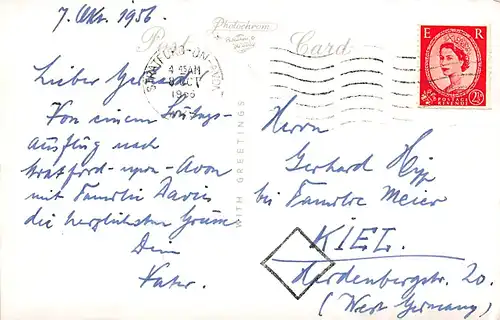 7. Okt. 1956.
Photochrom
Post Card
STRATFORD-UPON-AVON
4 45AM
8 OCT
1956
E R
2½D
POSTAGE REVENUE
WITH GREETINGS
Lieber Gerhard!
Von einem Sonntags-
Ausflug nach
Stratford-upon-Avon
mit Familie Davis
die herzlichsten Grüsse
Dein
Vater.
Herrn
Gerhard Hipp
bei Familie Meier
KIEL.
Hardenbergstr. 20.
(West Germany)